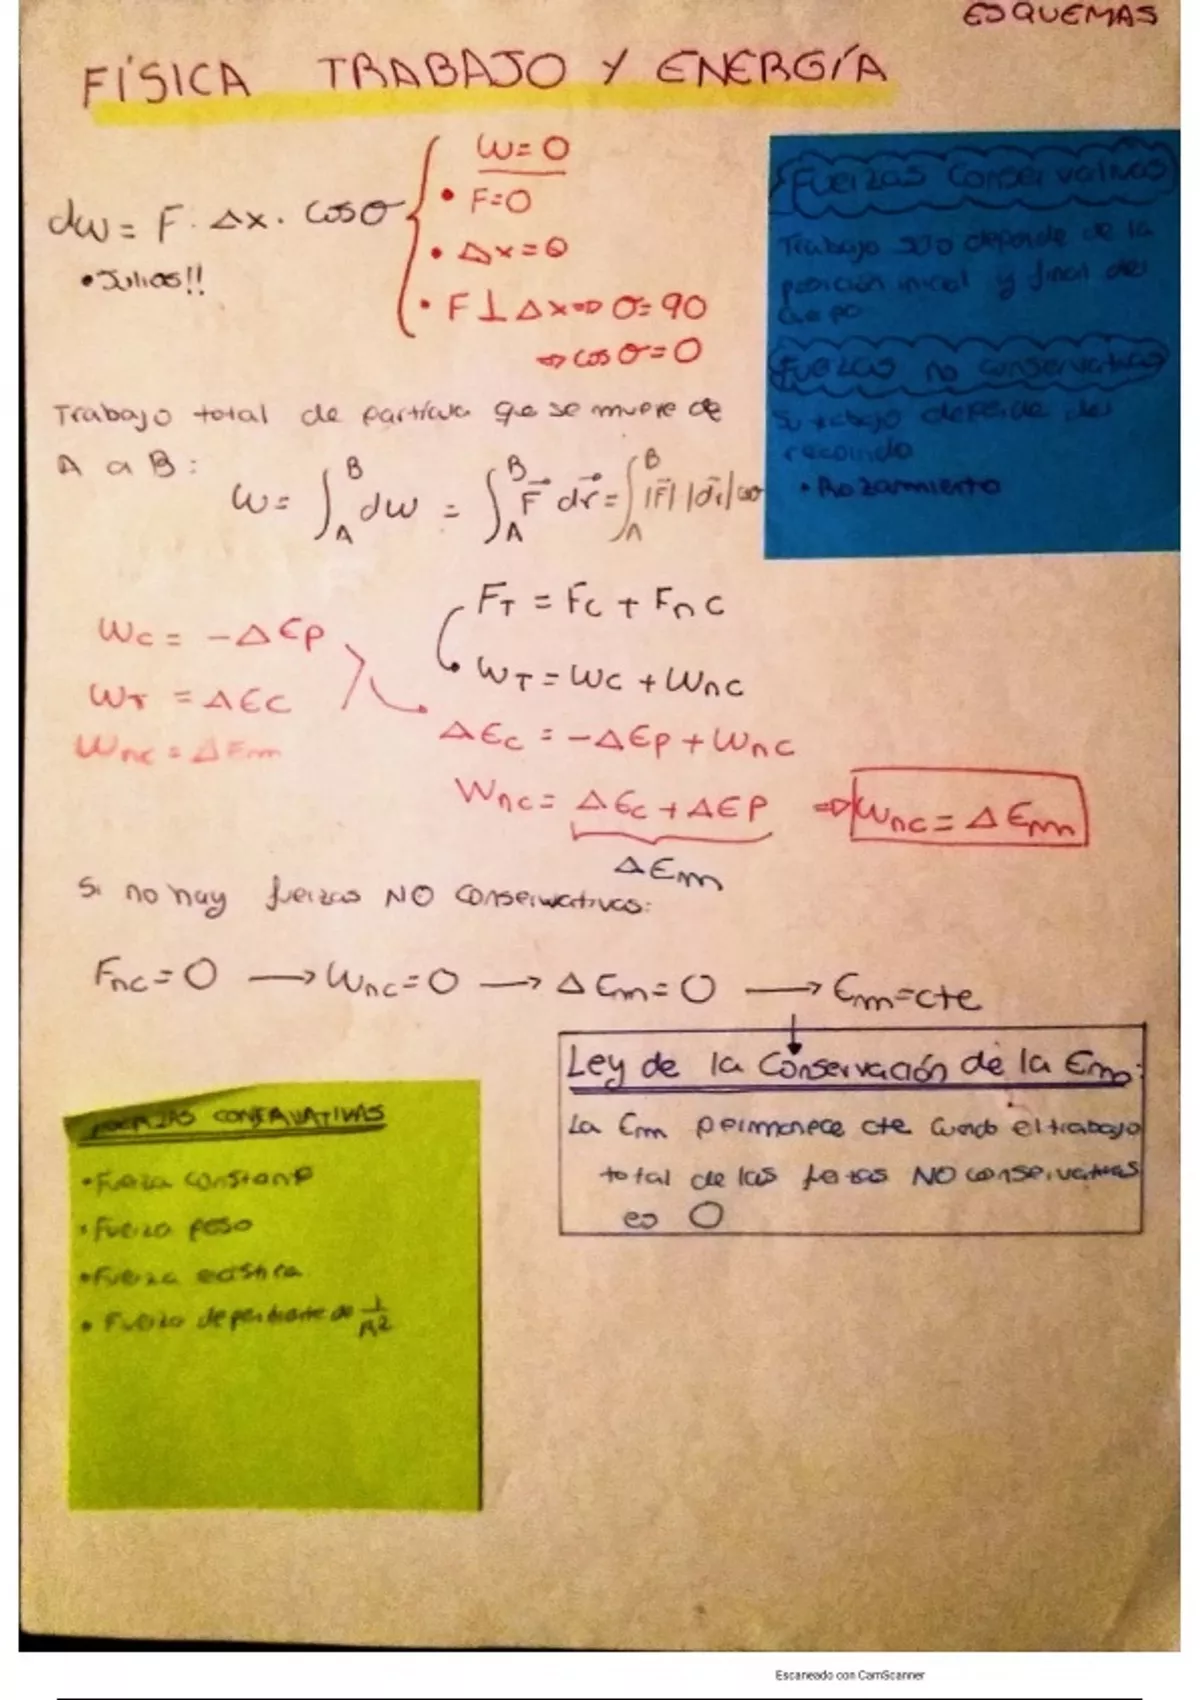 ESQUEMAS
FÍSICA TRABAJO Y ENERGÍA
W=0
dw = F · Δx · cosσ
• F=0
• Δx=0
• Julios!!
• F⊥Δx⇒ σ=90
⇒ cosσ=0
Fuerzas Conservativas
Trabajo solo depende de la
posición inicial y final del
cuerpo
Fuerzas no conservativas
Su trabajo depende del
recorrido
• Rozamiento
Trabajo total de partícula que se mueve de
A a B:
W= ∫_A^B dw = ∫_A^B F⃗ dr⃗ = ∫_A^B |F⃗| |dr⃗| cos
FT = Fc + Fnc
Wc = -ΔEp
WT = Wc + Wnc
WT = ΔEc
ΔEc = -ΔEp + Wnc
Wnc = ΔEm
Wnc = ΔEc + ΔEp ⇒ Wnc = ΔEm
ΔEm
Si no hay fuerzas NO conservativas:
Fnc=0 → Wnc=0 → ΔEm=0 → Em=cte
Ley de la Conservación de la Em:
La Em permanece cte cuando el trabajo
total de las fuerzas NO conservativas
es 0
FUERZAS CONSERVATIVAS
• Fuerza constante
• Fuerza peso
• Fuerza elástica
• Fuerza dependiente de 1/R²
Escaneado con CamScanner